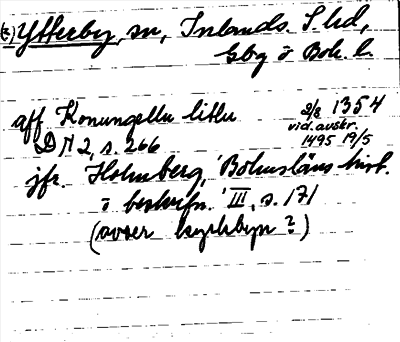 (k) Ytterby, sn, Inlands. S. hd,
Gbg o Boh. l.
aff Konungellu litlu 2/8 1354
vid. avskr.
DN 2, s. 266 1495 19/5
jfr. Holmberg, Bohusläns hist.
o beskrifn. III, s. 171
(avser kyrkbyn?)